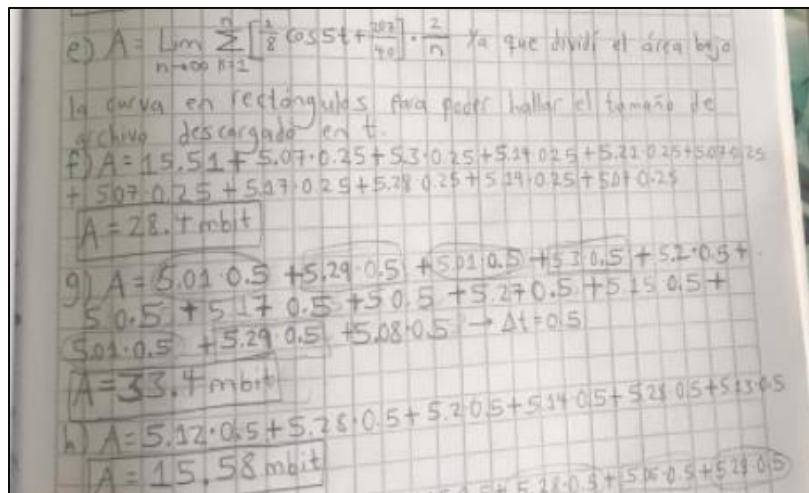 e) A = Lim n→∞ Σ [1/8 cos 5t + 207/40] · 2/n Ya que dividí el área bajo
la curva en rectángulos para poder hallar el tamaño de
archivo descargado en t.
f) A = 15.51 + 5.07·0.25 + 5.3·0.25 + 5.19·0.25 + 5.21·0.25 + 5.07·0.25
+ 5.07·0.25 + 5.17·0.25 + 5.28·0.25 + 5.19·0.25 + 5.07·0.25
A = 28.4 mbit
g) A = 5.01·0.5 + 5.29·0.5 + 5.01·0.5 + 5.3 0.5 + 5.2·0.5 +
5 0.5 + 5.17 0.5 + 5 0.5 + 5.27 0.5 + 5.15 0.5 +
5.01·0.5 + 5.29 0.5 + 5.08·0.5 → Δt = 0.5
A = 33.4 mbit
h) A = 5.12·0.5 + 5.28·0.5 + 5.2 0.5 + 5.14 0.5 + 5.28 0.5 + 5.13 0.5
A = 15.58 mbit
5.28·0.5 + 5.06·0.5 + 5.29 0.5